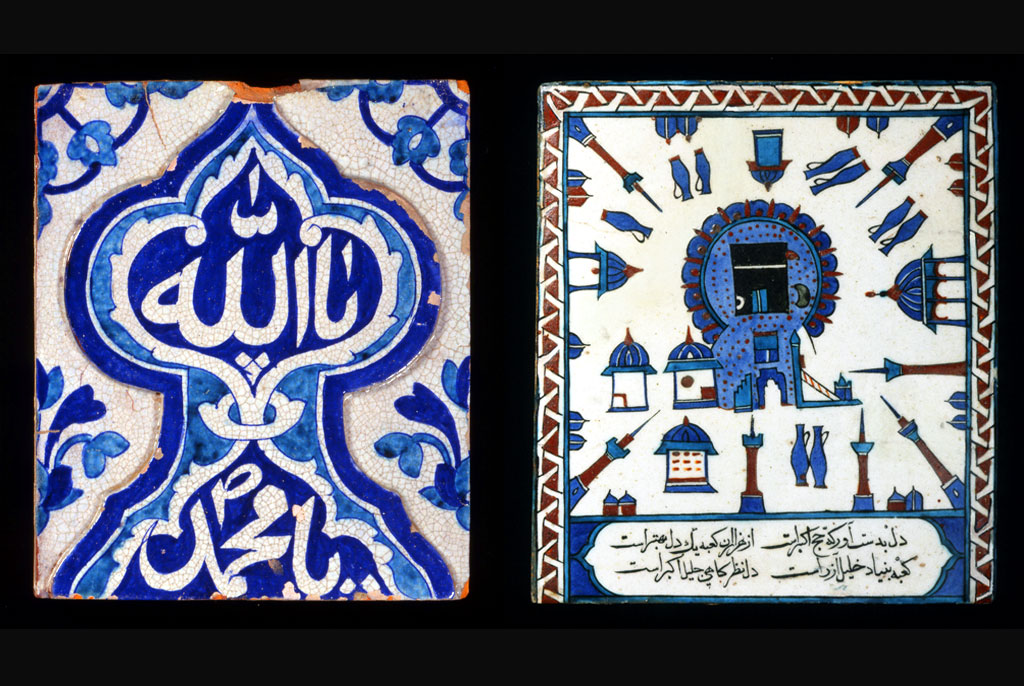 يا الله
يا محمد
دل بدست آور که حج اکبرست از هزاران کعبه يك دل بهتر است
کعبه بنياد خليل ازر است دل نظرکاهي جليل اکبر است